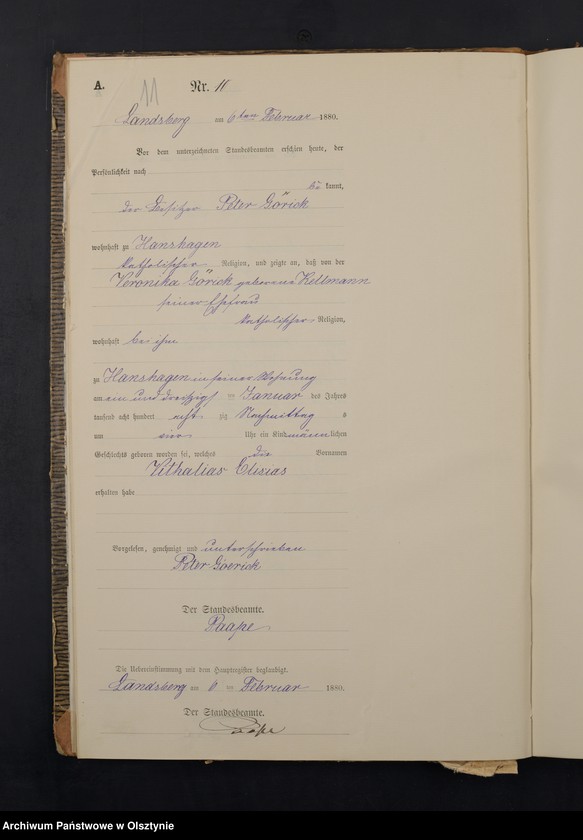 A.
11
Nr. 11
Landsberg am 6ten Februar 1880.
Vor dem unterzeichneten Standesbeamten erschien heute, der
Persönlichkeit nach
be kannt,
der Besitzer Peter Görick
wohnhaft zu Hanshagen
katholischer Religion, und zeigte an, daß von der
Veronika Görick geborene Hellmann
seiner Ehefrau
katholischer Religion,
wohnhaft bei ihm
zu Hanshagen in seiner Wohnung
am ein und dreißigsten Januar des Jahres
tausend acht hundert acht zig Nachmittag s
um vier Uhr ein Kind männlichen
Geschlechts geboren worden sei, welches die Vornamen
Vithalias Elisias
erhalten habe
Vorgelesen, genehmigt und unterschrieben
Peter Goerick
Der Standesbeamte.
Paape
Die Uebereinstimmung mit dem Hauptregister beglaubigt.
Landsberg am 6 ten Februar 1880.
Der Standesbeamte.
Paape
Archiwum Państwowe w Olsztynie